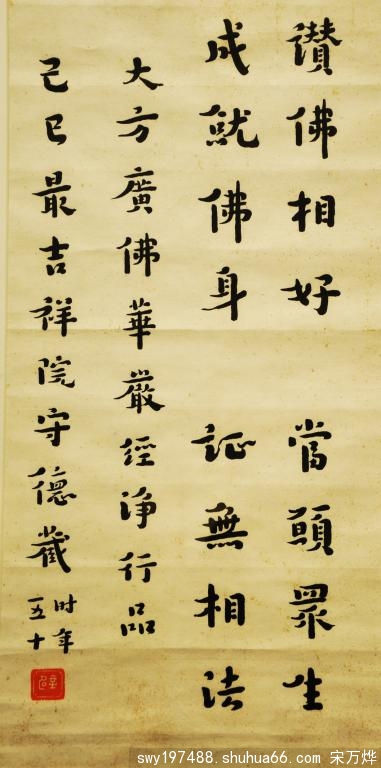 讚佛相好 當願眾生
成就佛身 証無相法
大方廣佛華嚴經淨行品
己巳最吉祥院守德
时年
一五十
swy197488.shuhua66.com 宋万烨